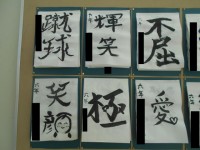 蹴球
輝笑
不屈
笑顔
極
愛
六年